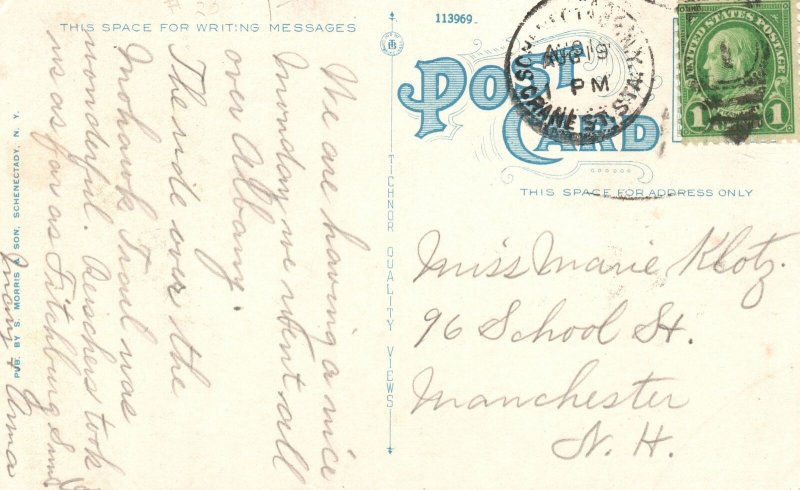 THIS SPACE FOR WRITING MESSAGES
113969
POST
CARD
AUG 19
1 PM
CRANE ST. STA.
UNITED STATES POSTAGE
1 1
THIS SPACE FOR ADDRESS ONLY
We are having a nice
Monday we went all
over Albany.
The ride over the
Mohawk Trail was
wonderful. took
us as far as Fitchburg Sun.
Mary + Anna
PUB. BY S. MORRIS & SON, SCHENECTADY, N. Y.
TICHNOR QUALITY VIEWS
Miss Marie Klotz.
96 School St.
Manchester
N. H.